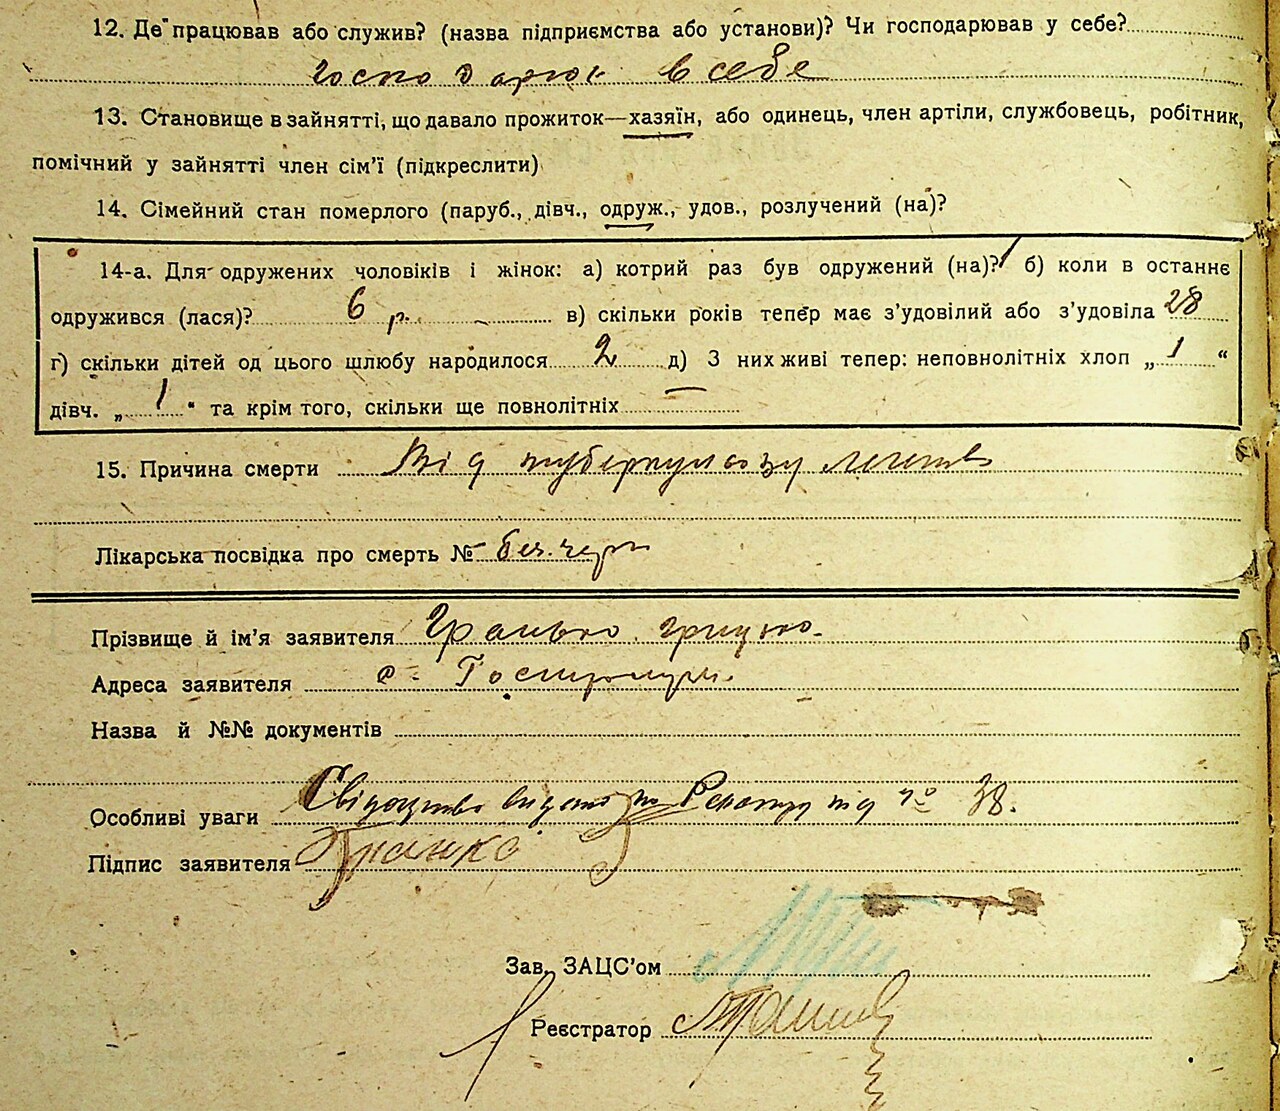 12. Де працював або служив? (назва підприємства або установи)? Чи господарював у себе?
господарюв в себе
13. Становище в зайнятті, що давало прожиток—хазяїн, або одинець, член артіли, службовець, робітник,
помічний у зайнятті член сім'ї (підкреслити)
14. Сімейний стан померлого (паруб., дівч., одруж., удов., розлучений (на)?
14-а. Для одружених чоловіків і жінок: а) котрий раз був одружений (на)? 1 б) коли в останнє
одружився (лася)? 6 р. в) скільки років тепер має з'удовілий або з'удовіла 28
г) скільки дітей од цього шлюбу народилося 2 д) З них живі тепер: неповнолітніх хлоп „ 1 “
дівч. „ 1 “ та крім того, скільки ще повнолітніх —
15. Причина смерти Від туберкульозу легенів
Лікарська посвідка про смерть №
Прізвище й ім'я заявителя
Адреса заявителя с.
Назва й №№ документів
Особливі уваги Свідоцтво видано по Реєстру під № 38.
Підпис заявителя
Зав. ЗАЦС'ом
Реєстратор